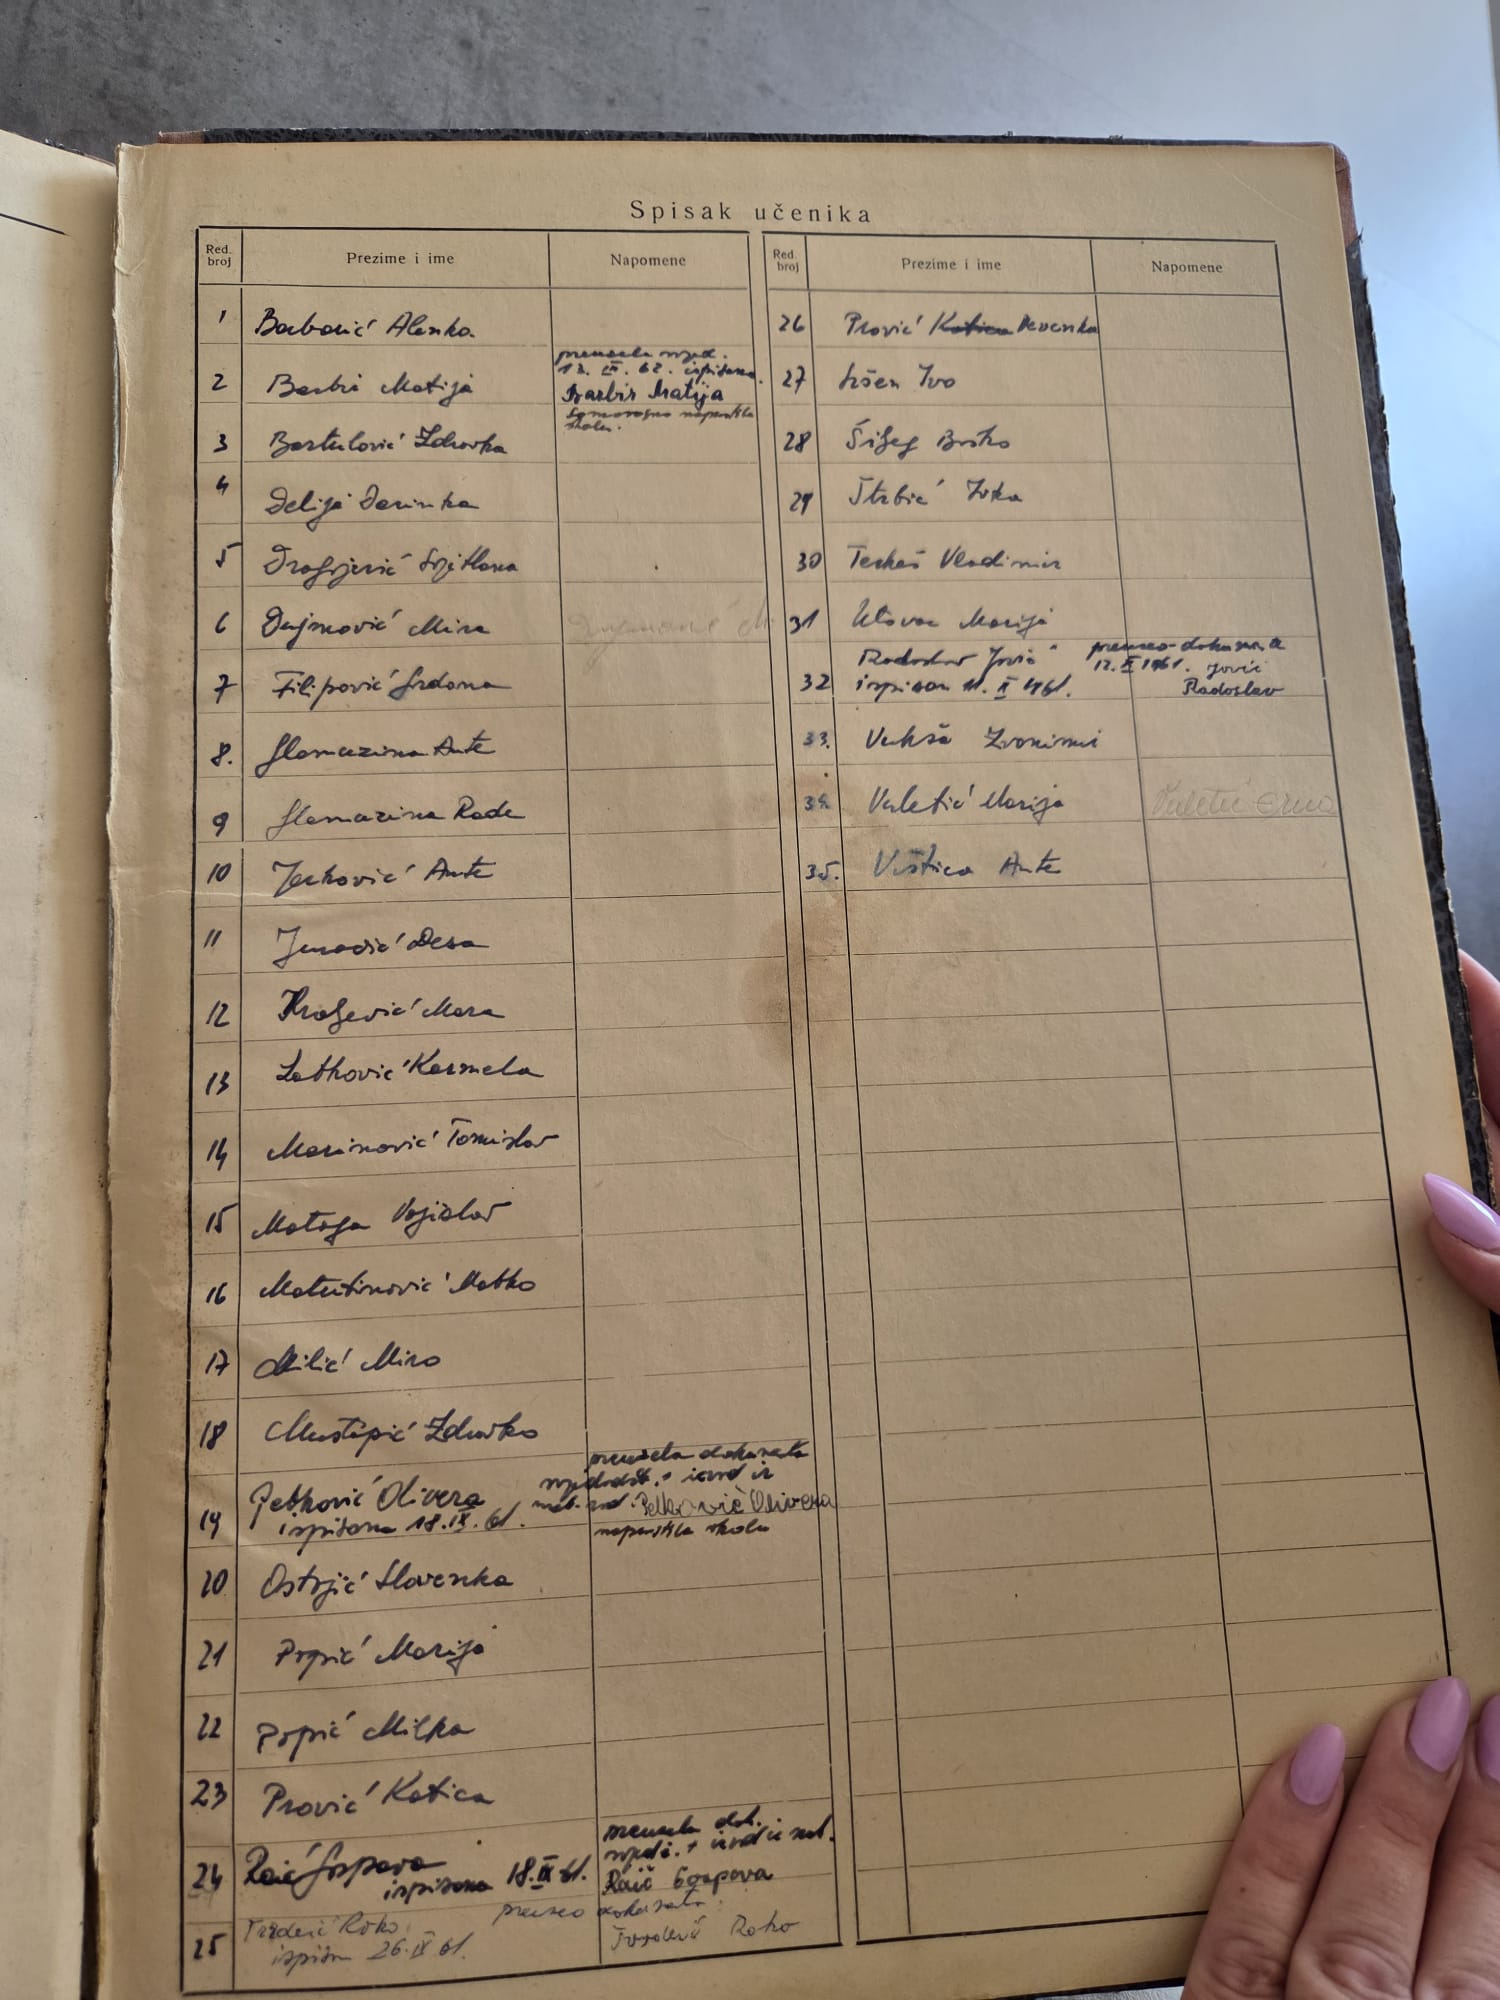 Spisak učenika
Red. broj Prezime i ime Napomene
1 Barbarić Alenka
2 Barbir Matija preuzela svjed.
13. IX. 62. ispisana.
Barbir Matija
samovoljno napustila
školu.
3 Bartulović Zdravka
4 Delija Darinka
5 Dragojević Svjetlana
6 Dujmović Mira
7 Filipović Gordana
8. Glamuzina Ante
9 Glamuzina Rade
10 Jerković Ante
11 Juračić Desa
12 Kraljević Mara
13 Latković Karmela
14 Marinović Tomislav
15 Mataga Vojislav
16 Matutinović Matko
17 Milić Miro
18 Mustapić Zdravko
19 Petković Olivera
ispisana 18. IX. 61.
preuzela dokumenta
svjedodž. + izvod iz
mat. rod. Petković Olivera
napustila školu
20 Ostojić Slavenka
21 Popić Marija
22 Popić Milka
23 Prović Katica
24 Raič Gospava
ispisana 18. IX 61.
preuzela dok.
svjed. + izvod iz mat.
Raič Gospava
25 Roko
ispisan 26. IX 61.
preuzeo dokumenta
Roko
Red. broj Prezime i ime Napomene
26 Prović Katica Nevenka
27 Sršen Ivo
28 Šišeg Branko
29 Štrbić Ivka
30 Terkeš Vladimir
31 Utovac Marija
32 Radoslav Jović
ispisan 11. X 1961.
preuzeo dokumenta
12. X 1961. Jović
Radoslav
33. Vukša Zvonimir
34. Vuletić Marija Vuletić Erna
35. Vištica Ante